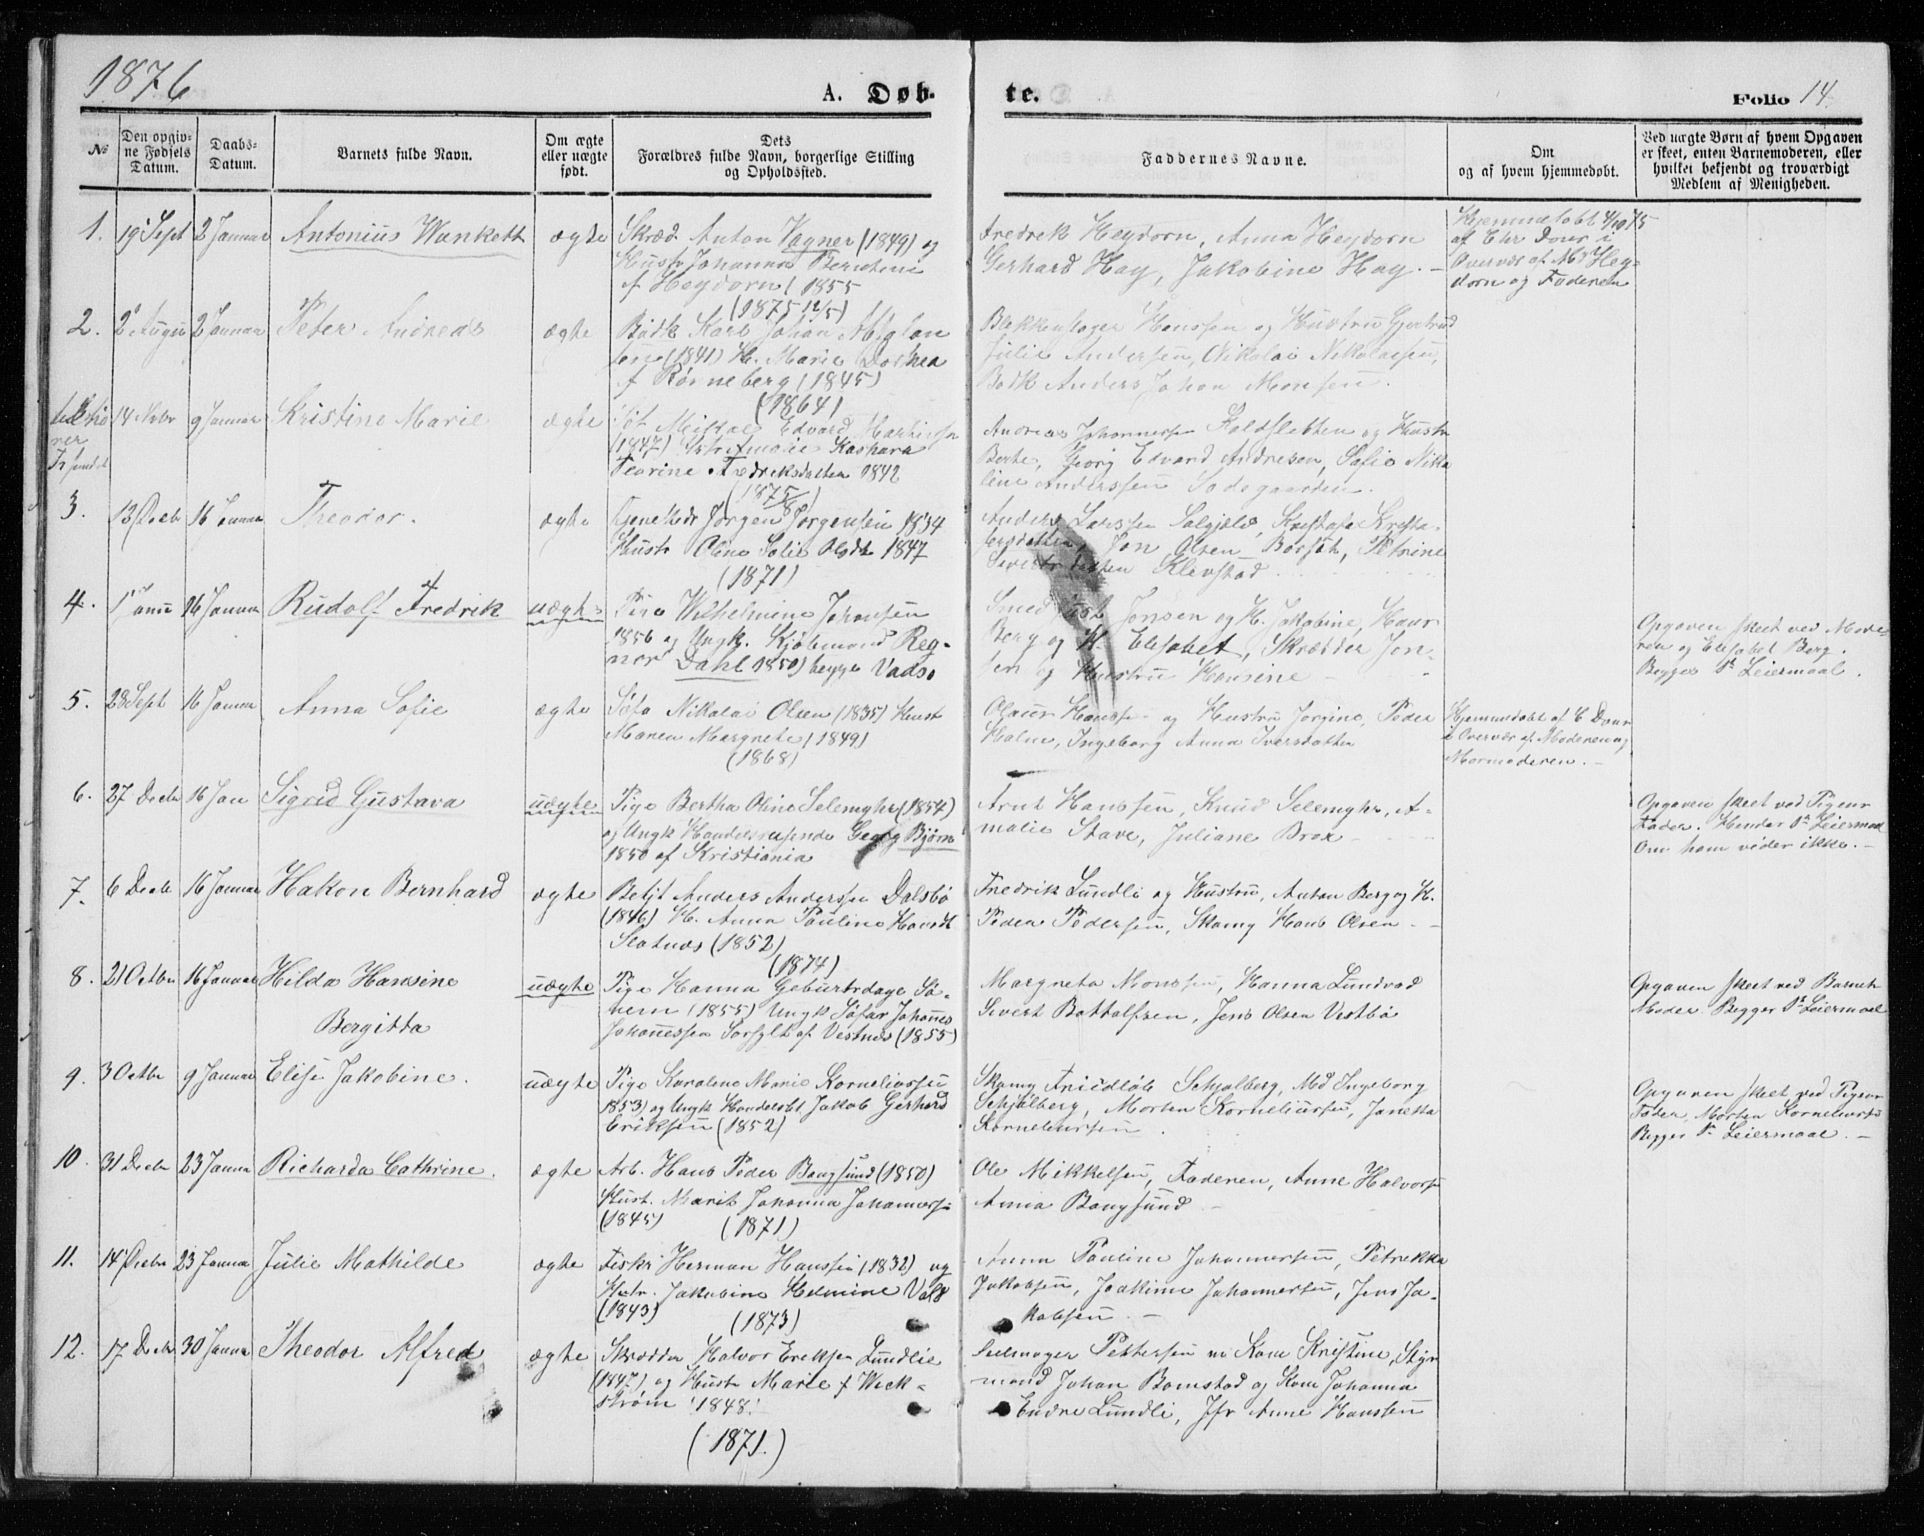 1876
A. Døb-
te.
Folio 14.
№
Den opgiv-
ne Fødsels
Datum.
Daabs-
Datum.
Barnets fulde Navn.
Om ægte
eller uægte
født.
Dets
Forældres fulde Navn, borgerlige Stilling
og Opholdssted.
Faddernes Navne.
Om
og af hvem hjemmedøbt.
Ved uægte Børn af hvem Opgaven
er skeet, enten Barnemoderen, eller
hvilket bekjendt og troværdigt
Medlem af Menigheden.
1. 19 Sept 2 Januar Antonius Wankett ægte Skræd. Anton Vagner (1849) og
Hustr Johanna
f Heydorn (1855
(1875 12/5)
Fredrik Heydorn, Anna Heydorn
Gerhard Hay, Jakobine Hay. –
Hjemmedøbt 4/10 75
af Ehr Dour i
Overvær af Md Hey-
dorn og Faderen
2. 2 Augu 2 Januar Peter Andreas ægte Bødk Karl Johan
(1841) H. Marie Dorthea
f Rønneberg (1845)
(1864)
Blikkenslager Hanssen og Hustru Gjertrud
Julie Andersen, Nikolai Nikolaisen,
Bødk Anders Johan Monsen.
14 Novbr 9 Januar Kristine Marie ægte Edvard
(1847) Amalie
Fredriksdatter 1842
(1875)
Andreas Johannessen og Hustr
Berte, Georg Edvard Andresen, Sofie Nika
line Anderssen
3. 13 Decbr 16 Januar Theodor. ægte Jørgen Jørgensen 1834
Hustr Oline Sofie Olsdt 1847
(1871)
Anders Larssen
Jon Olsen Petrine
Klevstad
4. 1 Janu 16 Januar Rudolf Fredrik uægte Pige Wilhelmine Johansen
1856 og Ungk. Kjøbmand Reg-
nor Dahl 1850) begge Vadsø
Smed Jonsen og H. Jakobine, Hans
Berg og H. Elisabet, Skrædder Jon-
sen og Hustru Hansine –
Opgaven skeet ved Mode-
ren og Elisabet Berg.
Begges 1st Leiermaal.
5. 28 Sept 16 Januar Anna Sofie ægte Nikolai Olsen (1835) Hust
Maren Margrete (1849)
(1868)
Hansse og Hustru Jorgine, Peder
Holm, Ingeborg Anna Iversdatter
Hjemmedøbt af E Dour
i Overvær af Moderen og
Mormoderen. –
6. 27 Decbr 16 Jan Sigrid Gustava uægte Pige Bertha Oline Selemyhr (1854)
og Ungk Handelsreisende Georg Bjørn
1850 af Kristiania
Arnt Hanssen, Knud Selemyhr, A-
malie Stave, Juliane Brox –
Opgaven skeet ved Pigens
Fader. Hendes 1st Leiermaal
Om ham vides ikke. –
7. 6 Decbr 16 Januar Hakon Bernhard ægte Betjt Anders Anderssen Dalsbø
(1846) H. Anna Pauline
(1852)
(1874)
Fredrik Lundli og Hustru, Anton Berg og H.
Peder Pedersen, Skomg Hans Olsen –
8. 21 Octbr 16 Januar Hilda Hansine
Bergitta
uægte Pige Hanna
(1855) Ungk
Johannessen af Vestnes (1855)
Margreta Monssen, Hanna Lundvad
Sivert Bottolfsen, Jens Olsen Vestbø
Opgaven skeet ved Barnets
Moder. Begges 1st Leiermaal
9. 3 Octbr 9 Januar Elise Jakobine. uægte Pige Karoline Marie Korneliussen
1853) og Ungk Handelsbt Jakob Gerhard
Eriksen (1852)
Skomg Schjølberg, Md Ingeborg
Schjølberg, Morten Korneliussen, Janetta
Korneliussen.
Opgaven skeet ved Pigens
Fader, Morten Korneliussen
Begges 1st Leiermaal. –
10. 31 Decbr 23 Januar Richarda Cathrine. ægte Arb. Hans Peder Bangsund (1850)
Hust. Marit Johanna Johanness
(1845) (1871)
Ole Mikkelsen, Faderen, Anne Halvors
Anna Bangsund –
11. 14 Decbr 23 Januar Julie Mathilde ægte Fisk Herman Hanssen (1832) og
Hstr. Jakobine Helmine
(1843) (1873)
Anna Pauline Johannessen, Petrikka
Jakobsen, Joakime Johannessen, Jens Ja-
kobsen –
12. 17 Decbr 30 Januar Theodor Alfred ægte Skrædder Halvor Eriksen Lundlie
(1847) og Hustr Marie f Wick-
strøm (1848)
(1871.)
Seilmager Pettersen m Kone Kristine, Styr
mand Johan Bomstad og Kone Johanna
Endre Lundli, Jfr Anne Hanssen